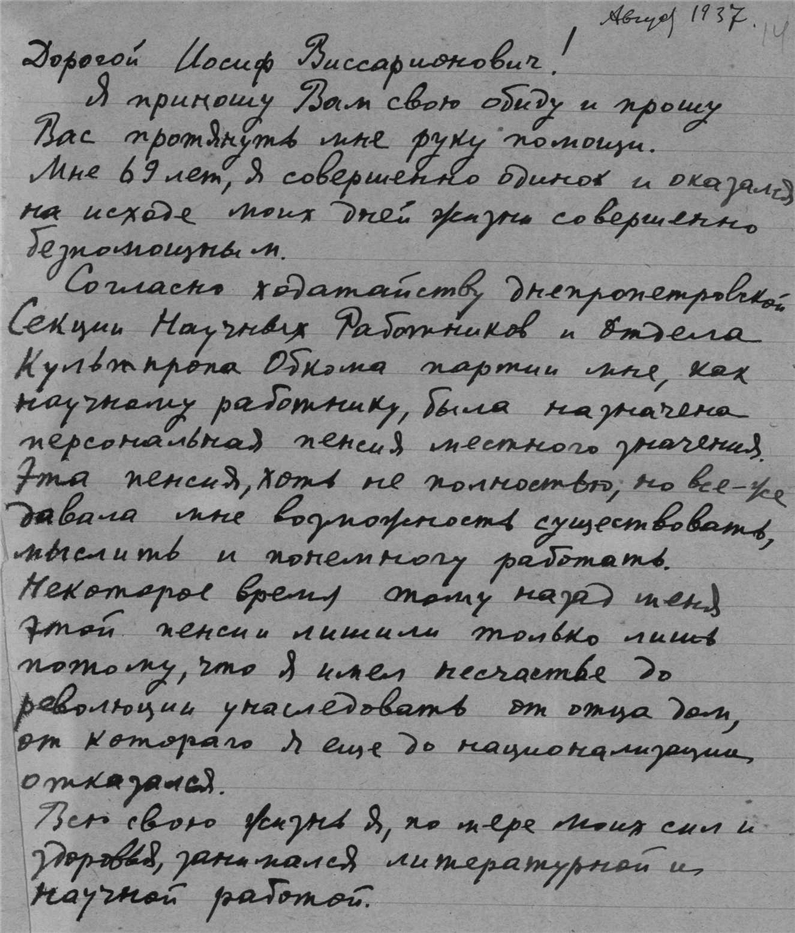 Август 1937.
14
Дорогой Иосиф Виссарионович!
Я приношу Вам свою обиду и прошу
Вас протянуть мне руку помощи.
Мне 69 лет, я совершенно одинок и оказался
на исходе моих дней жизни совершенно
безпомощным.
Согласно ходатайству днепропетровской
Секции Научных Работников и отдела
Культпропа Обкома партии мне, как
научному работнику, была назначена
персональная пенсия местного значения.
Эта пенсия, хоть не полностью, но все-же
давала мне возможность существовать,
мыслить и понемногу работать.
Некоторое время тому назад меня
этой пенсии лишили только лишь
потому, что я имел несчастье до
революции унаследовать от отца дом,
от котораго я еще до национализации
отказался.
Всю свою жизнь я, по мере моих сил и
здоровья, занимался литературной и
научной работой.